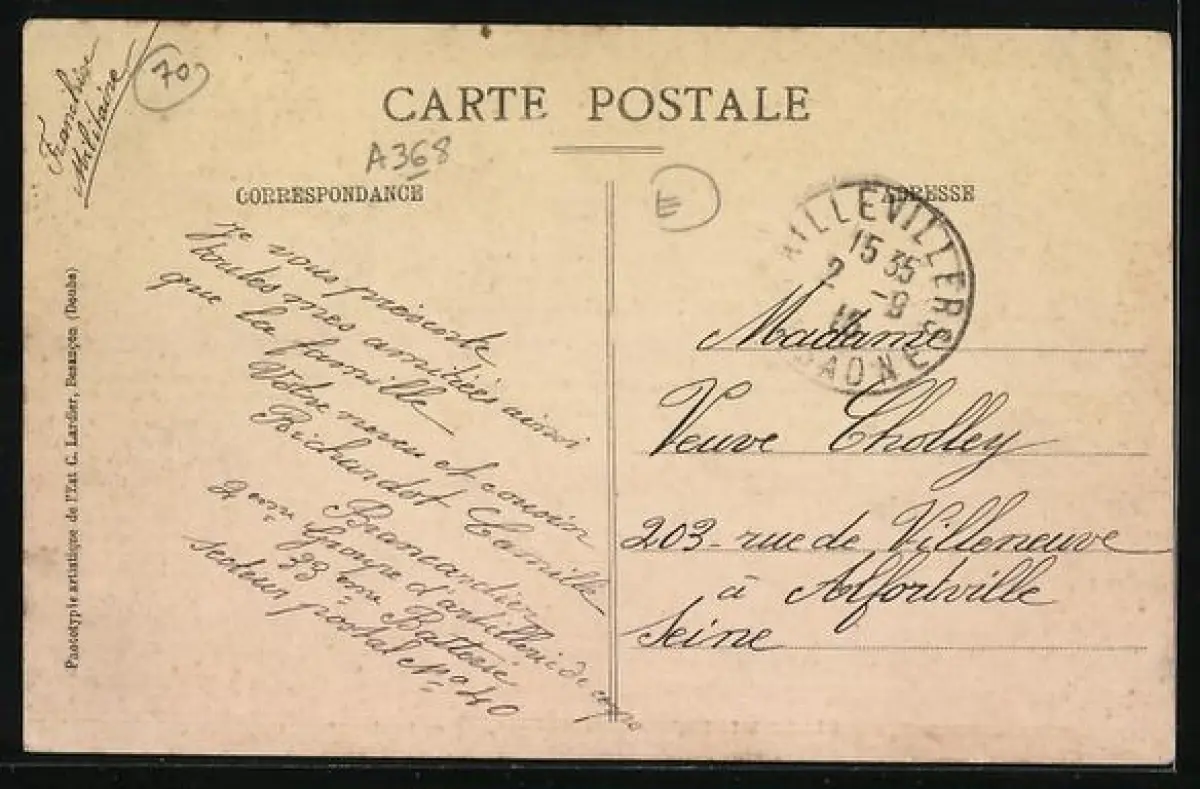 Franchise
Militaire
70
CARTE POSTALE
A368
CORRESPONDANCE
E
ADRESSE
AILLEVILLERS
15 35
2 -9
15
SAONE
Je vous présente
toutes mes amitiés ainsi
que la famille
Votre neveu et cousin
Richardot Camille
Brancardier
2eme Groupe d'artillerie de corps
33 eme Batterie
Secteur postal No 40
Madame
Veuve Cholley
203 - rue de Villeneuve
à Alfortville
Seine
Phototypie artistique de l'Est C. Lardier, Besançon (Doubs)